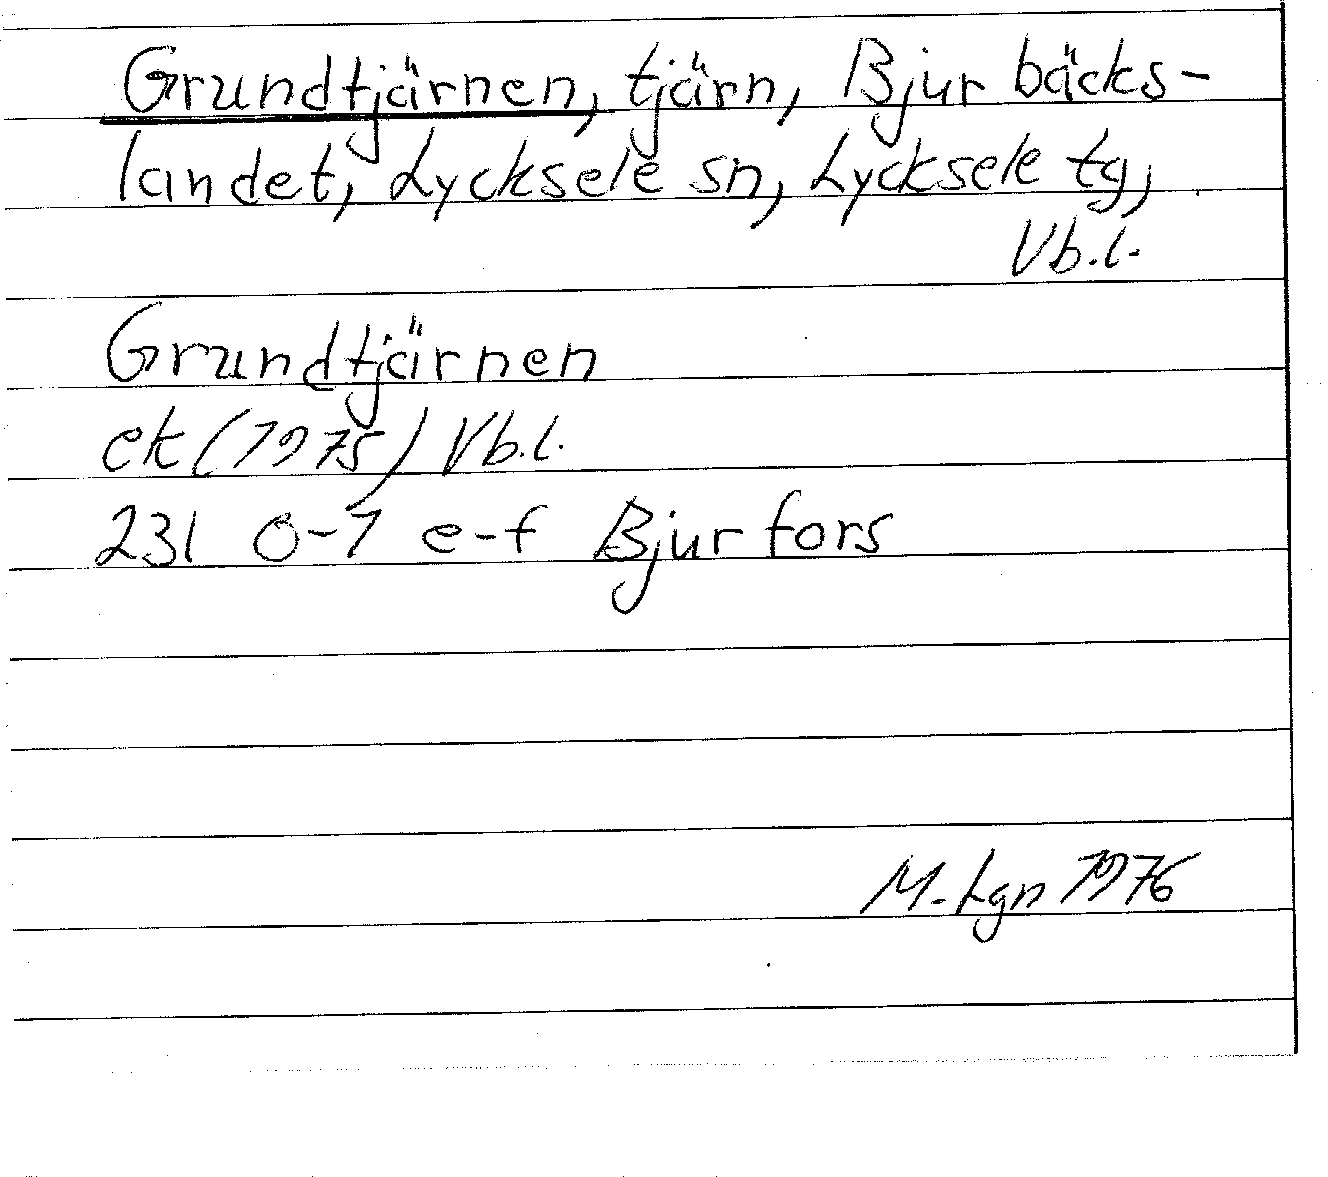 Grundtjärnen, tjärn, Bjurbäcks-
landet, Lycksele sn, Lycksele tg,
Vb.l.
Grundtjärnen
ek (1975) Vb.l.
231 0-1 e-f Bjurfors
M. Lgn 1976